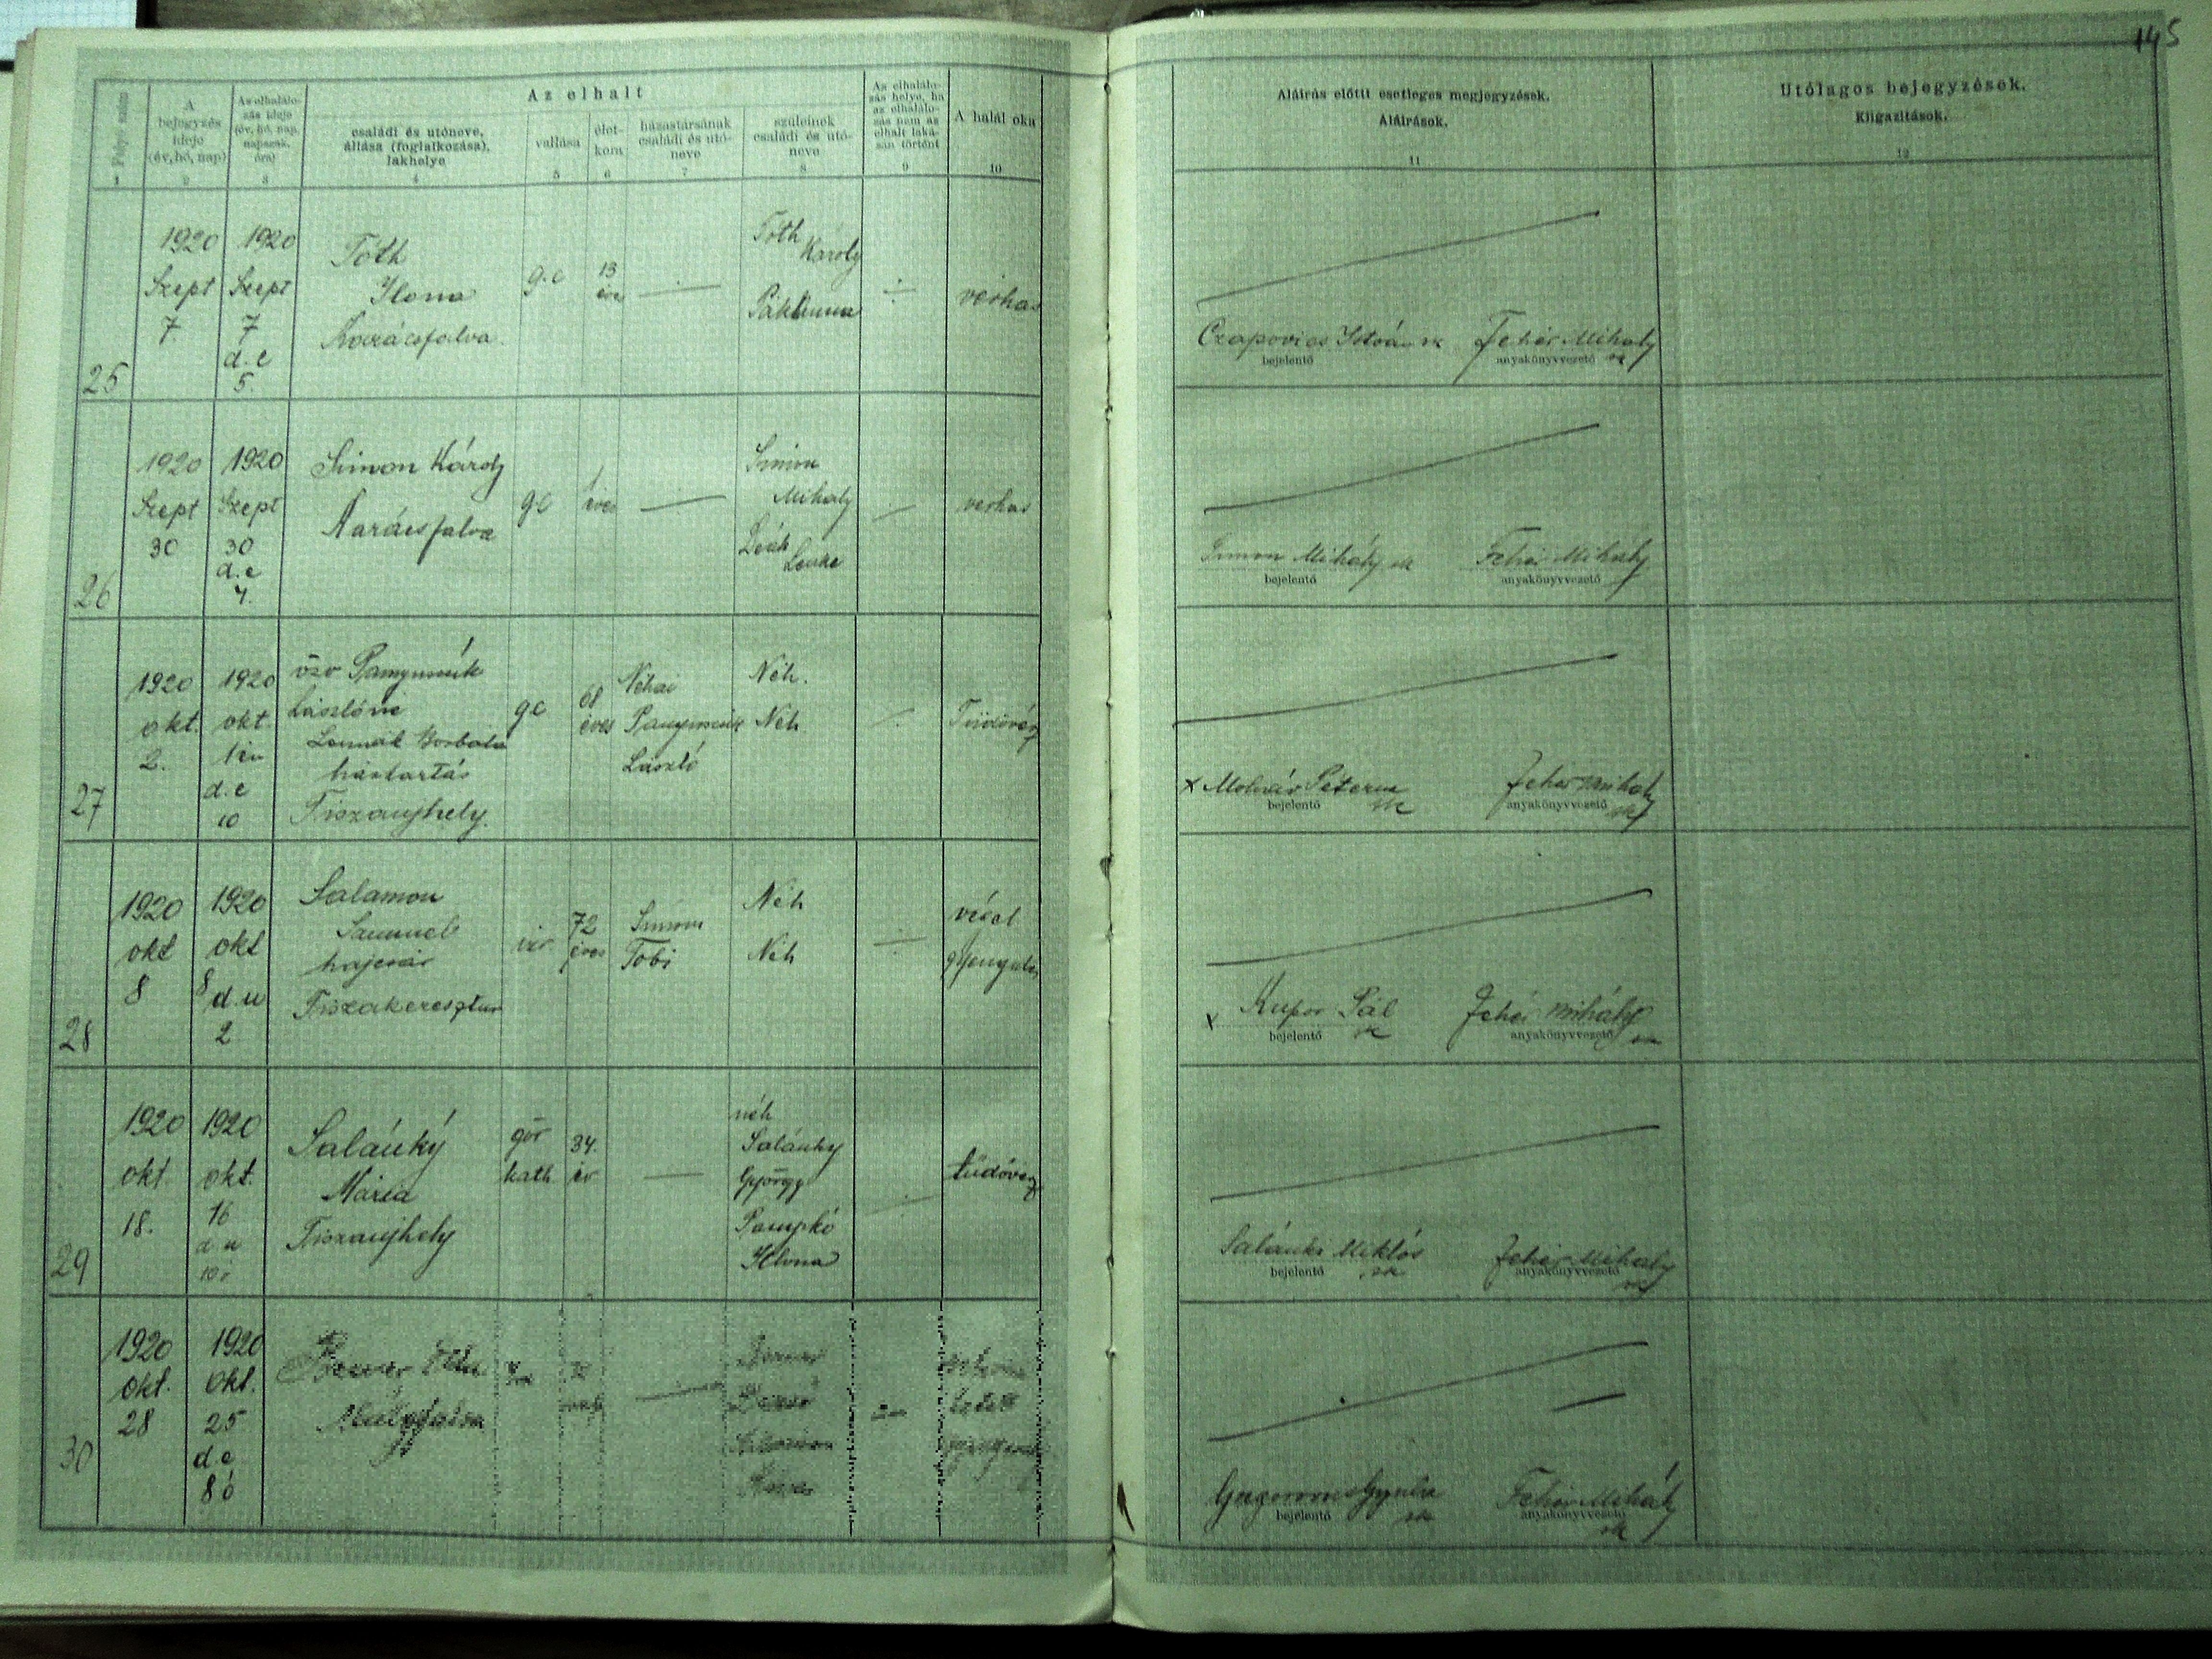 145
Folyó szám
1
A
bejegyzés
ideje
(év, hó, nap)
2
Az elhalálo-
zás ideje
(év, hó, nap,
napszak,
óra)
3
Az elhalt
családi és utóneve,
állása (foglalkozása),
lakhelye
4
vallása
5
élet-
kora
6
házastársának
családi és utó-
neve
7
szüleinek
családi és utó-
neve
8
Az elhalálo-
zás helye, ha
az elhalálo-
zás nem az
elhalt laká-
sán történt
9
A halál oka
10
Aláírás előtti esetleges megjegyzések.
Aláírások.
11
Utólagos bejegyzések.
Kiigazítások.
12
25
1920
Szept
7.
1920
Szept
7
d.e
5.
Tóth
Ilona
Karácsfalva
g.c
13
éves
Tóth
Károly
verhas
Czapovics István sk
bejelentő
Fehér Mihaly
anyakönyvvezető
sk
26
1920
Szept
30
1920
Szept
30
d.e
4.
Simon Károly
Karácsfalva
gc
1
éves
Simon
Mihaly
Deák
verhas
Simon Mihály sk
bejelentő
Fehér Mihály
anyakönyvvezető
27
1920
okt.
2.
1920
okt
1én
d.e
10
özv
Lászlóné
Borbála
háztartás
Tiszaujhely.
gc
68
éves
Néhai
László
Néh.
Néh
Tüdővész
x Molnár Péterné
bejelentő
sk
Fehér Mihaly
anyakönyvvezető
sk
28
1920
okt
8
1920
okt
8 d.u
2
Salamon
Samuel
Tiszakeresztur
izr
72
éves
Simon
Tobi
Néh
Néh
végel
gyengülés
x Kupor Pál
bejelentő
sk
Fehér Mihály
anyakönyvvezető
sk
29
1920
okt.
18.
1920
okt.
16
d u
10 ó
Salánky
Mária
Tiszaujhely
gör
kath
34.
év
néh
Salánky
György
Pampkó
Ilona
tüdővész
Salánki Miklós
bejelentő
sk
Fehér Mihaly
anyakönyvvezető
sk
30
1920
okt.
28
1920
okt.
25
d.e
8 ó
Gyula
bejelentő
sk
Fehér Mihály
anyakönyvvezető
sk